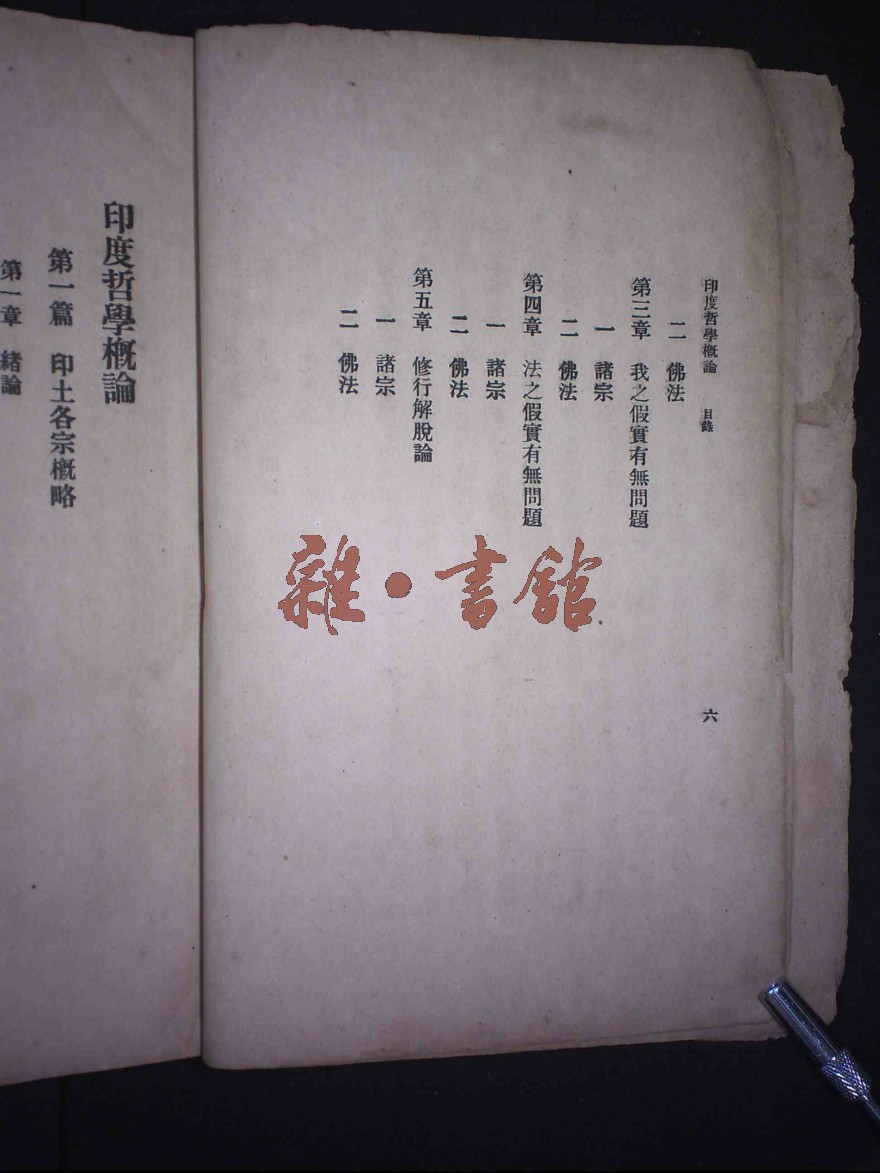 印度哲學概論 目錄
六
二 佛法
第三章 我之假實有無問題
一 諸宗
二 佛法
第四章 法之假實有無問題
一 諸宗
二 佛法
第五章 修行解脫論
一 諸宗
二 佛法
雜·書館
印度哲學概論
第一篇 印土各宗概略
第一章 緒論